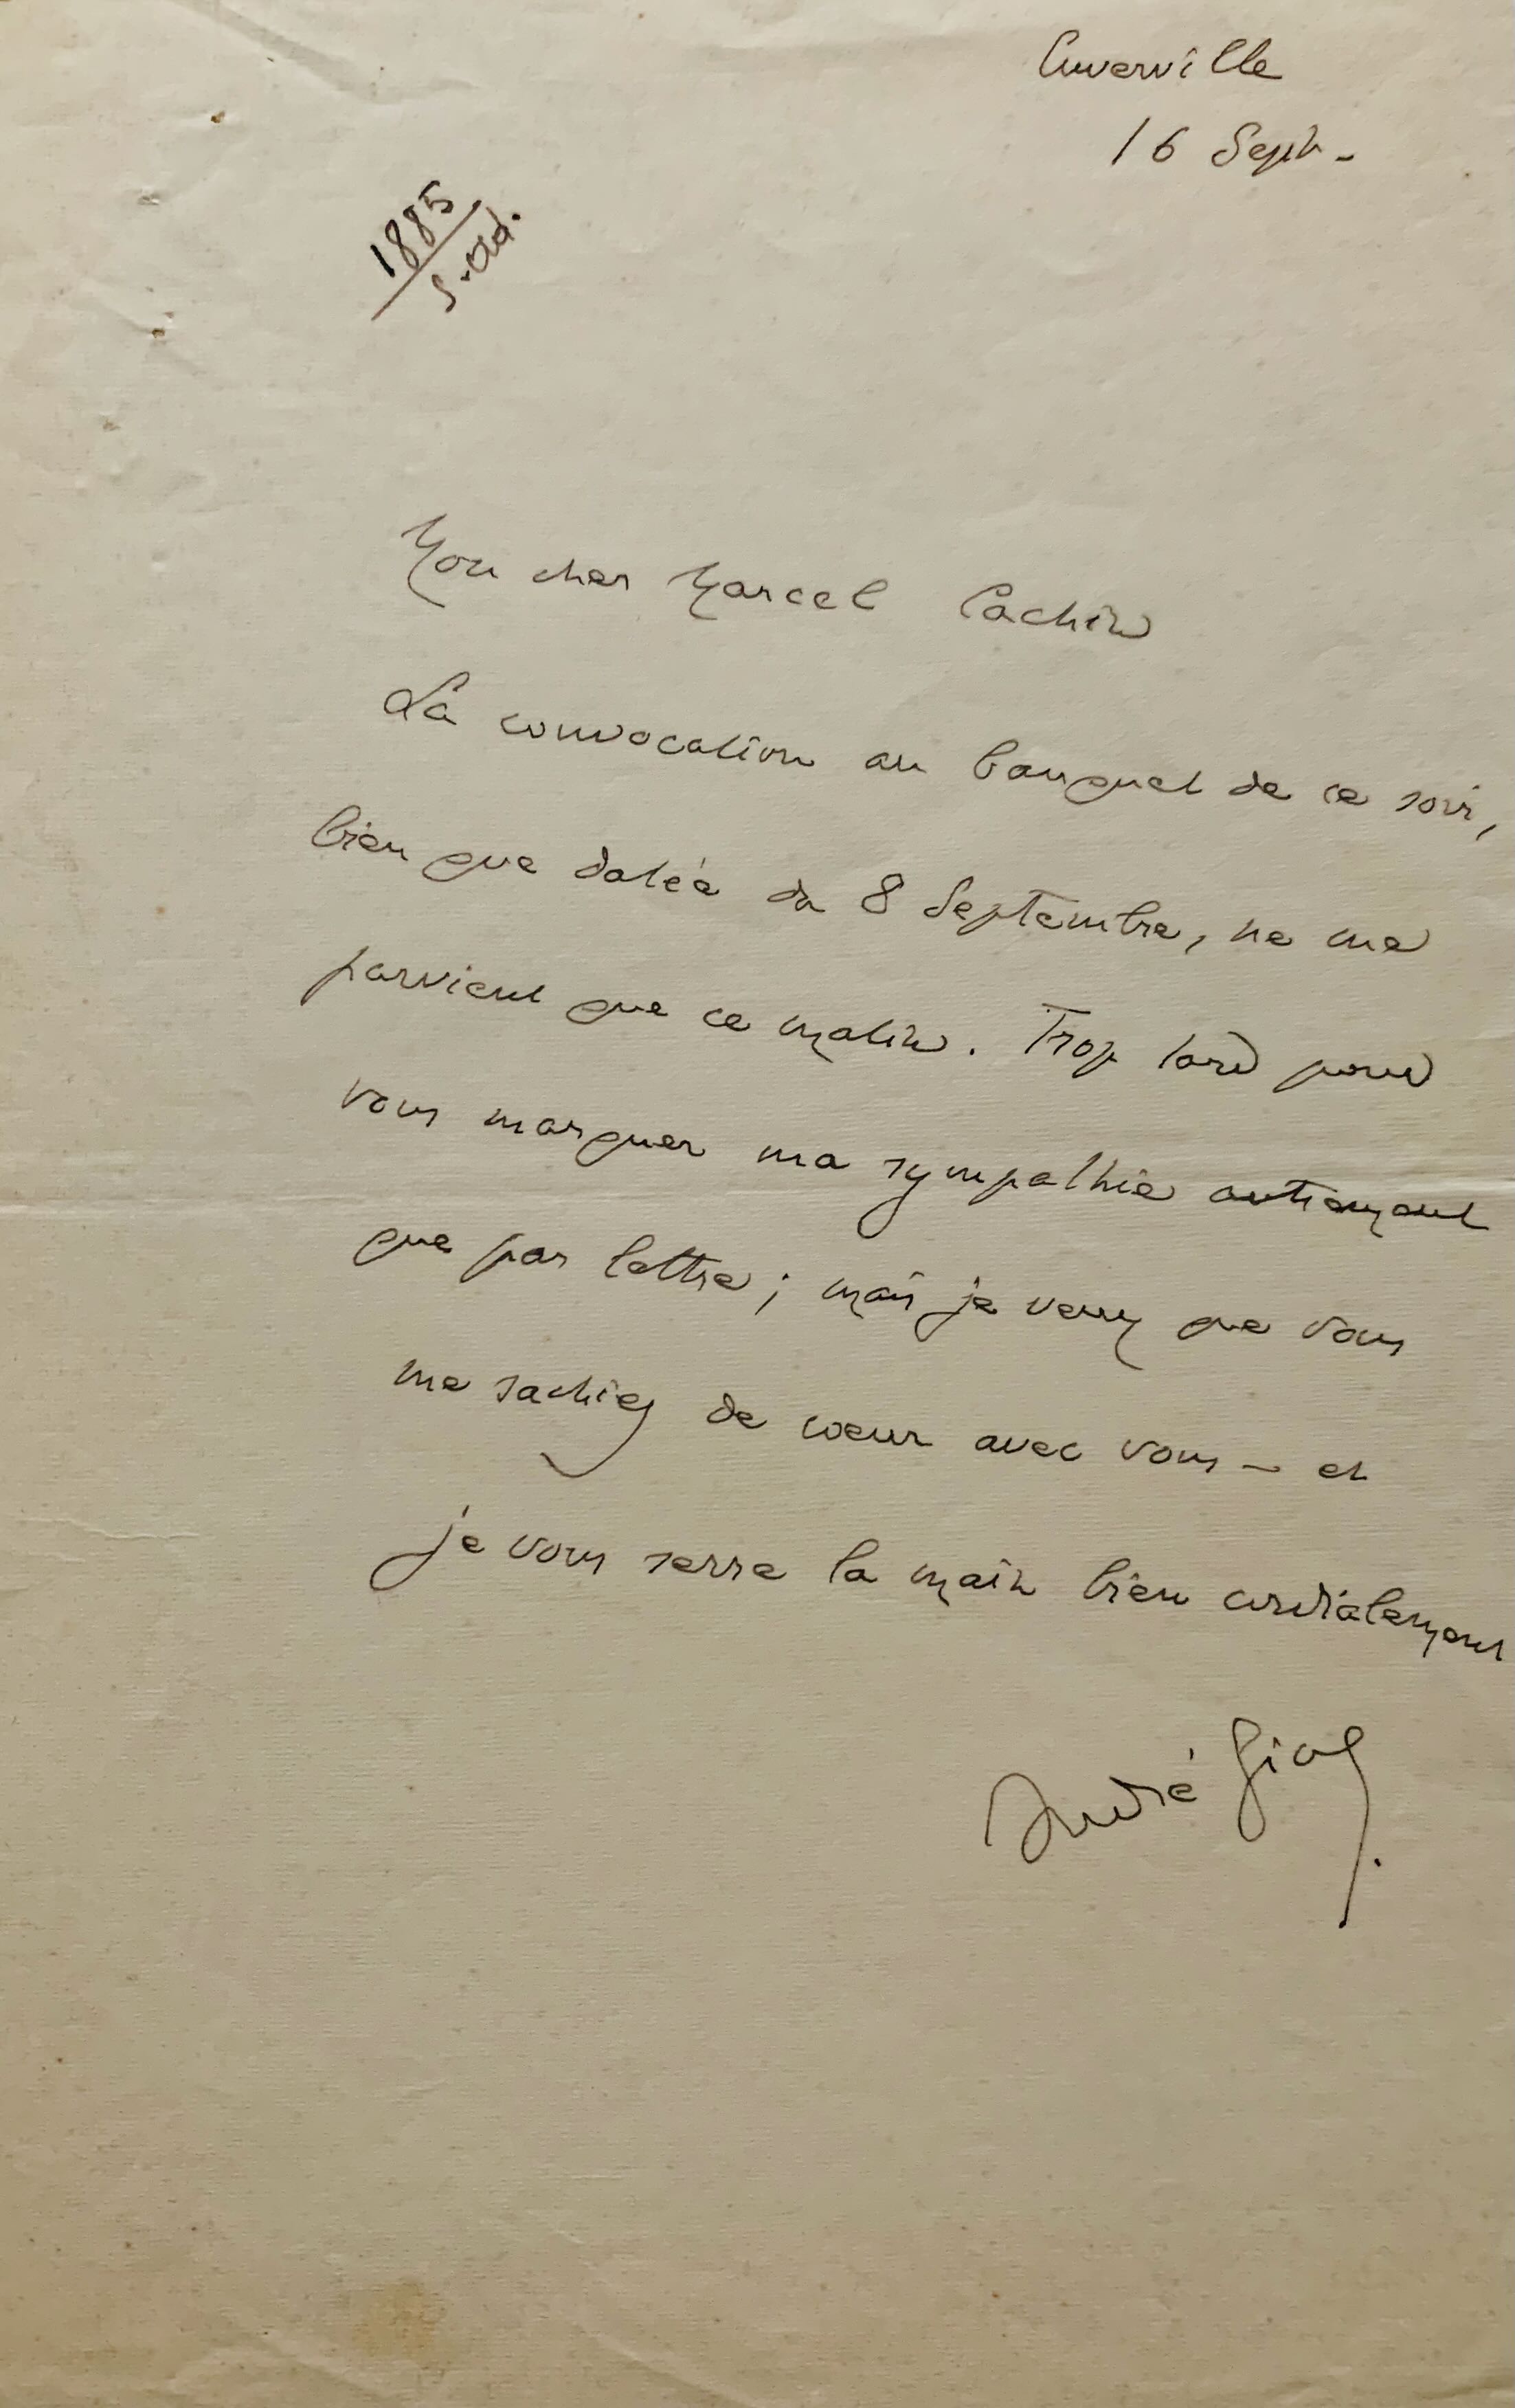 Cuverville
16 Sept.
1885
Mon cher Marcel Cachin
La convocation au banquet de ce soir,
bien que datée du 8 Septembre, ne me
parvient que ce matin. Trop tard pour
vous marquer ma sympathie autrement
que par lettre ; mais je veux que vous
me sachiez de cœur avec vous — et
je vous serre la main bien cordialement
André Gide.